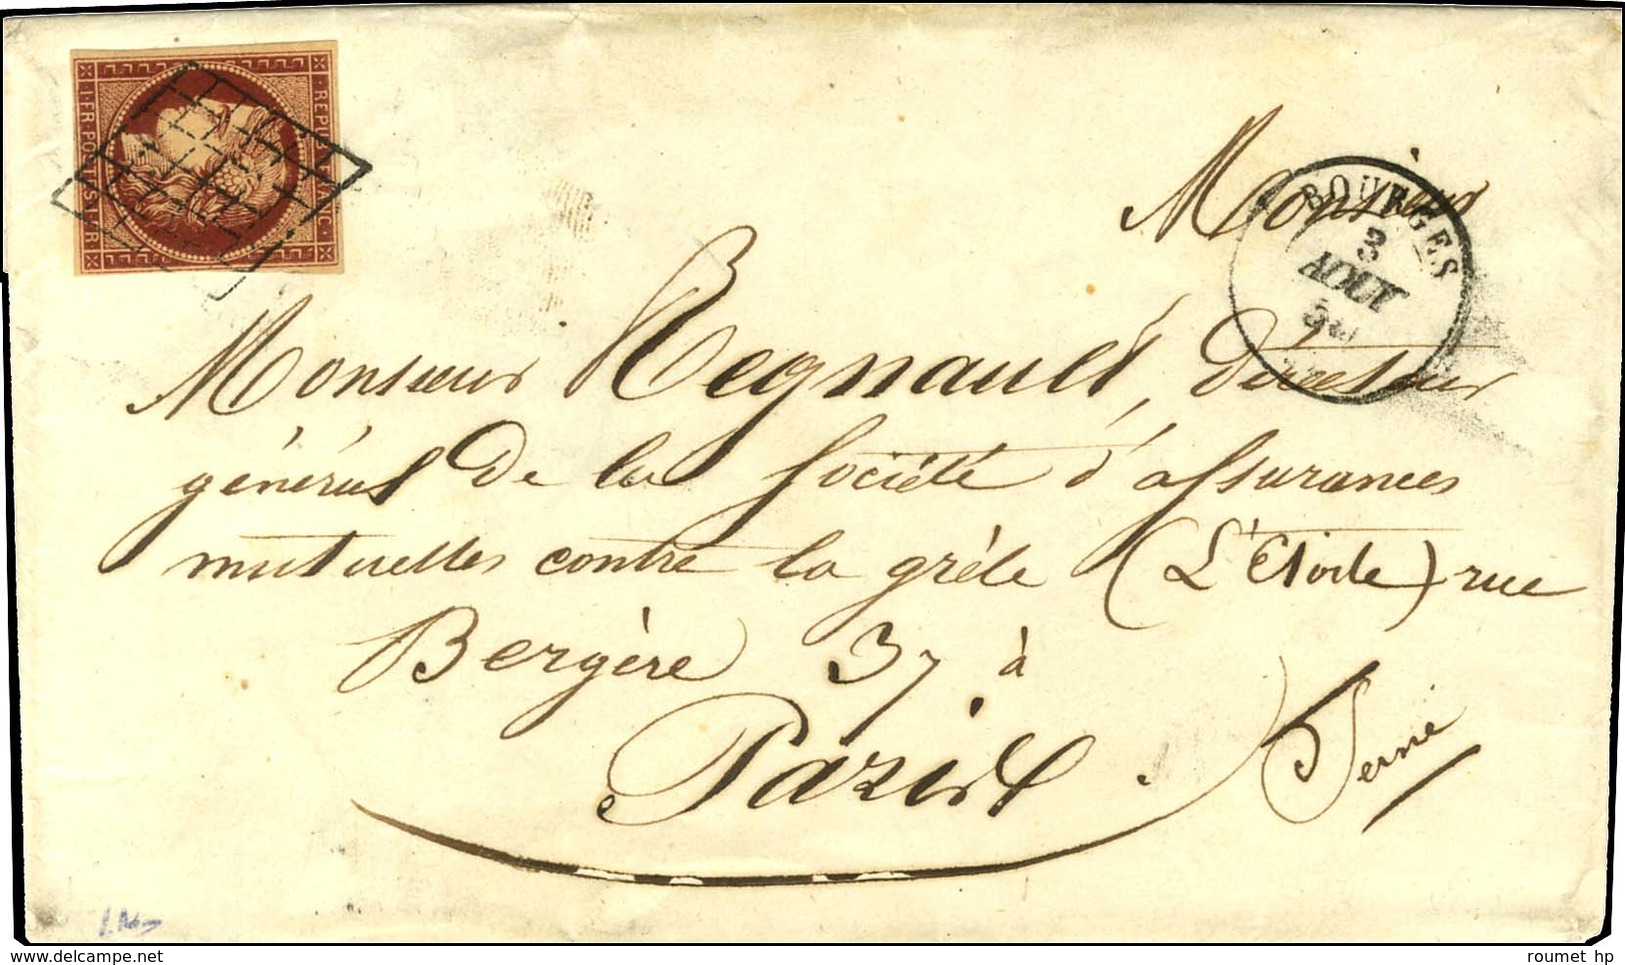 REPUB FRANC.
1·FR·POSTES·1·FR
BOURGES
3
AOUT
Monsieur
Monsieur Regnault, directeur
général de la Société d'assurances
mutuelles contre la grêle (L'Etoile) rue
Bergère 37 à
Paris
Seine
www.delcampe.net
roumet hp